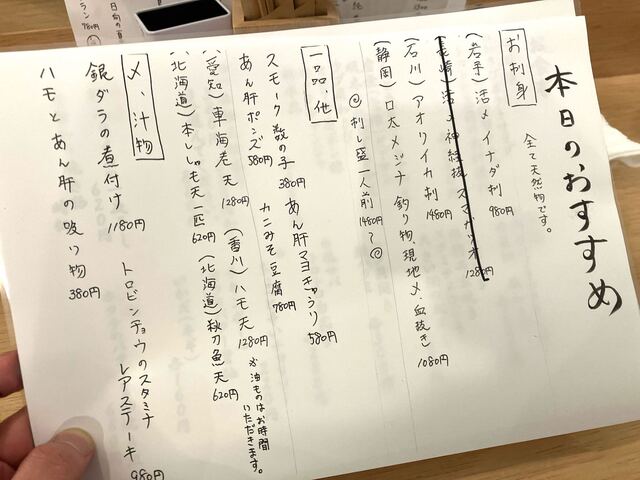 本日のおすすめ
全て天然物です。
お刺身
(岩手) 活〆イナダ刺 980円
(長崎) 活〆神経抜 スマガツオ 1280円
(石川) アオリイカ刺 1480円
(静岡) 口太メジナ 釣り物、現地〆、血抜き 1080円
◎刺し盛一人前 1480円〜◎
一品、他
スモーク数の子 380円 あん肝マヨきゅうり 580円
あん肝ポンズ 580円 カニみそ豆腐 780円
(愛知) 車海老天 1280円 (香川) ハモ天 1280円 ※泊ものはお時間いただきます。
(北海道) 本ししゃも天一匹 620円 (北海道) 秋刀魚天 620円
〆、汁物
銀ダラの煮付け 1180円 トロビンチョウのスタミナ
レアステーキ 980円
ハモとあん肝の吸い物 380円